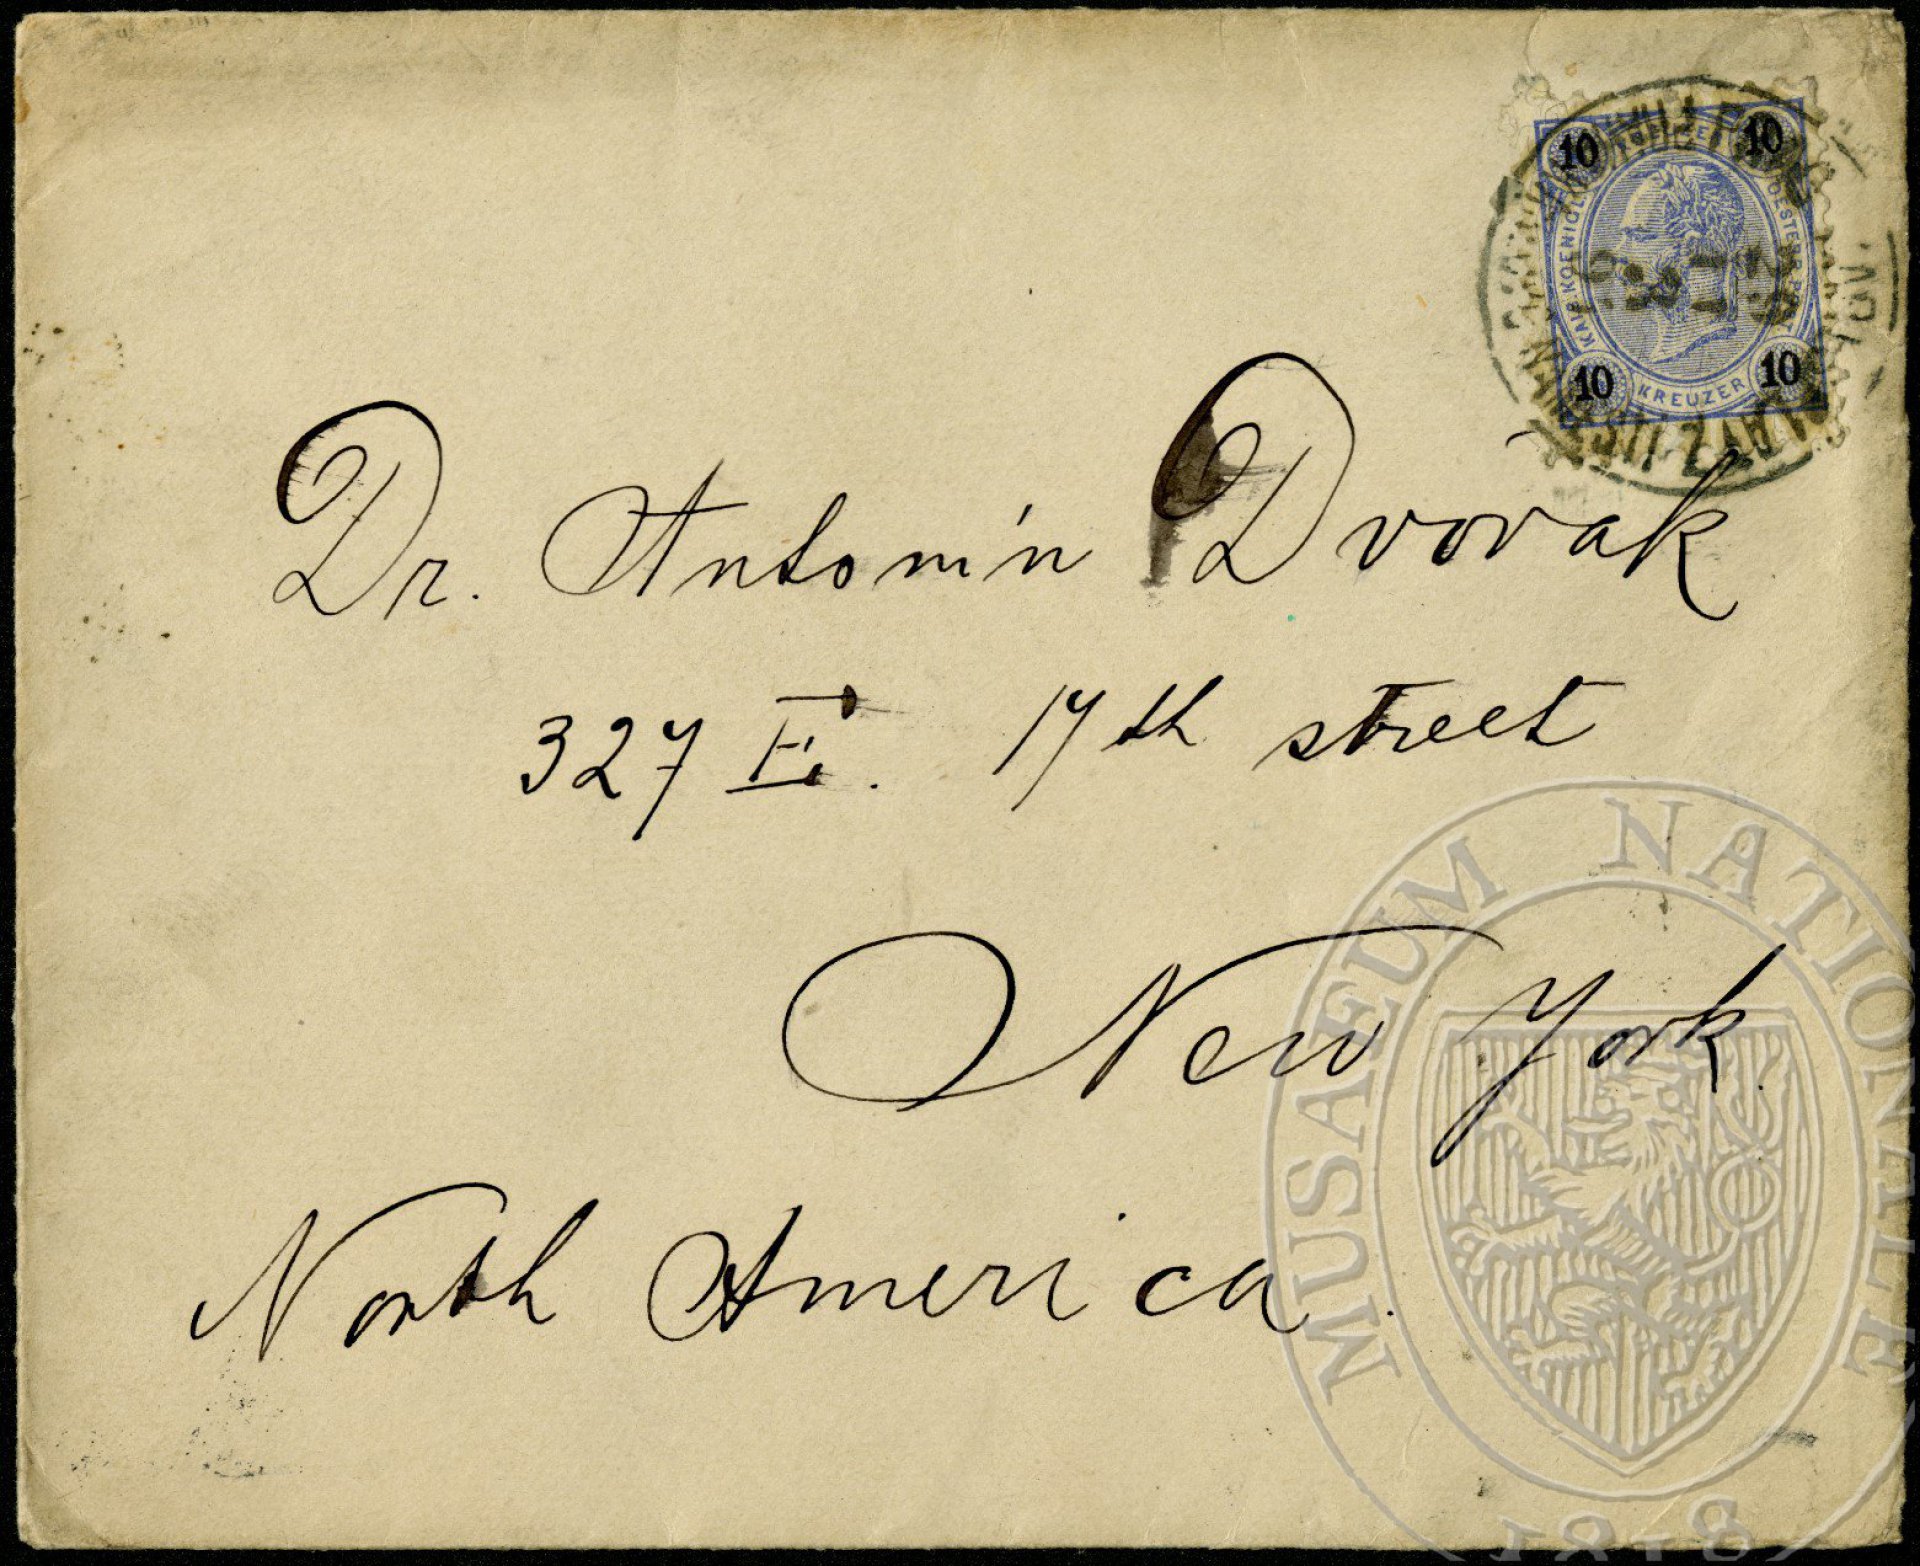 Dr. Antonín Dvořák
327 E. 17th street
New York.
North America.
10 10
KAIS. KOENIGL. OESTERR. POST
10 KREUZER 10
MUSAEUM NATIONALE
1818